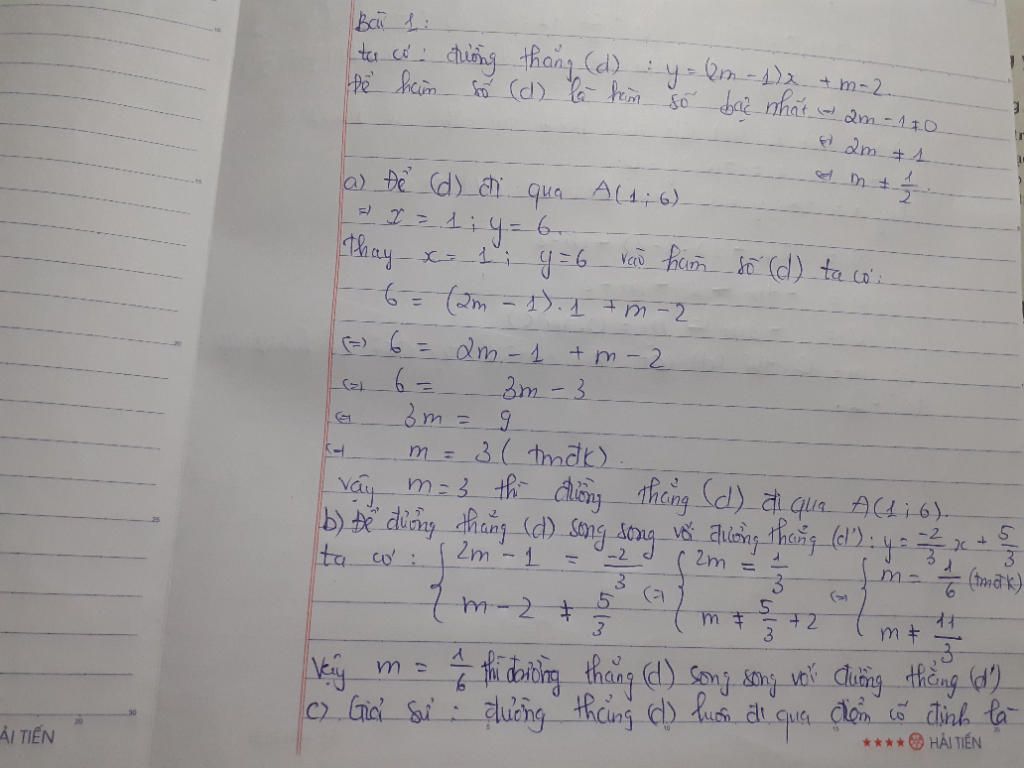 Bài 1:
ta có: đường thẳng (d) : y = (2m - 1)x + m - 2.
Để hàm số (d) là hàm số bậc nhất ⇔ 2m - 1 ≠ 0
⇔ 2m ≠ 1
⇔ m ≠ 1/2.
a) Để (d) đi qua A(1; 6)
⇒ x = 1; y = 6.
thay x = 1; y = 6 vào hàm số (d) ta có:
6 = (2m - 1).1 + m - 2
⇔ 6 = 2m - 1 + m - 2
⇔ 6 = 3m - 3
⇔ 3m = 9
⇔ m = 3 (tmđk).
Vậy m = 3 thì đường thẳng (d) đi qua A(1; 6).
b) Để đường thẳng (d) song song với đường thẳng (d'): y = -2/3 x + 5/3
ta có: { 2m - 1 = -2/3 ; m - 2 ≠ 5/3 ⇔ { 2m = 1/3 ; m ≠ 5/3 + 2 ⇔ { m = 1/6 (tmđk) ; m ≠ 11/3
Vậy m = 1/6 thì đường thẳng (d) song song với đường thẳng (d')
c) Giả sử: đường thẳng (d) luôn đi qua điểm cố định là
ẢI TIẾN
★★★★ HẢI TIẾN